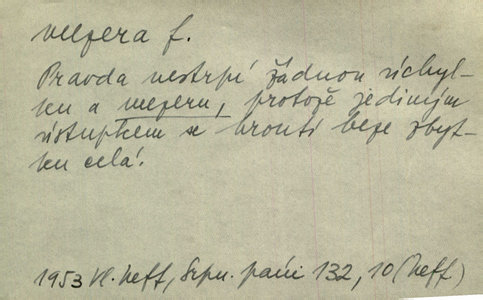 mezera f.
Pravda nestrpí žádnou úchyl-
ku a mezeru, protože jediným
ústupkem se hroutí beze zbyt-
ku celá.
1953 Vl. Neff, Srpn. páni 132, 10 (Neff)